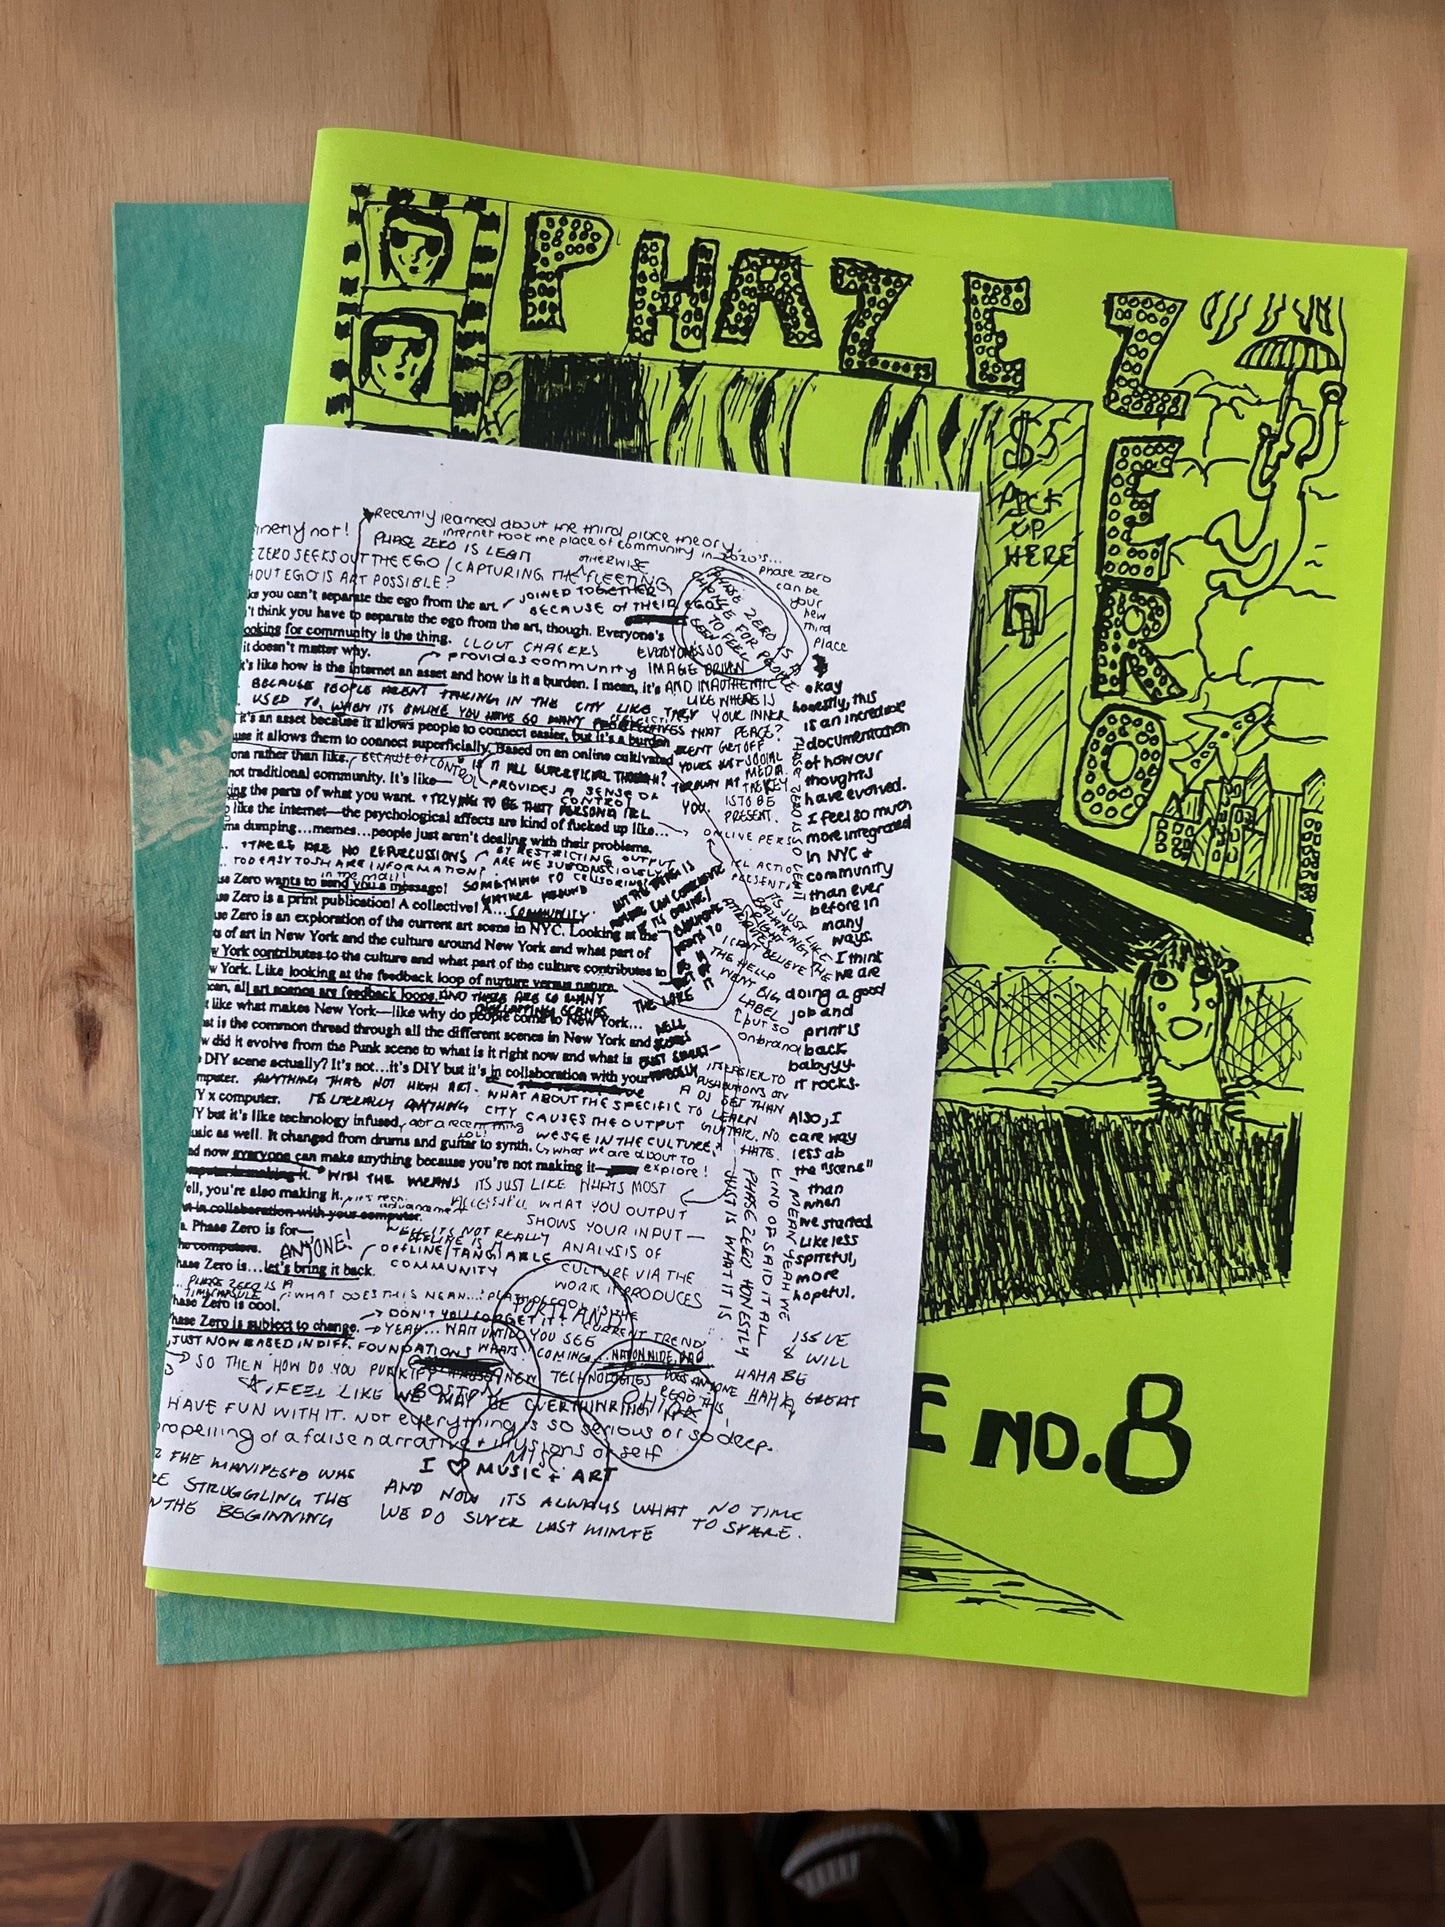 PHAZE
ZERO
$5
PICK
UP
HERE
NO.8
Recently learned about the third place theory...
internet took the place of community in 2020's...
PHASE ZERO IS LEGIT
OTHERWISE
ZERO SEEKS OUT THE EGO / CAPTURING THE FLEETING
OUT EGO IS ART POSSIBLE?
JOINED TOGETHER
you can't separate the ego from the art.
BECAUSE OF THEIR EGOS
think you have to separate the ego from the art, though. Everyone's
looking for community is the thing.
CLOUT CHASERS
it doesn't matter why.
provides community
it's like how is the internet an asset and how is it a burden. I mean, it's
BECAUSE PEOPLE ARENT TAKING IN THE CITY LIKE THEY
USED TO, WHEN ITS ONLINE YOU HAVE SO MANY
it's an asset because it allows people to connect easier, but it's a burden
it allows them to connect superficially. Based on an online cultivated
rather than like.
BECAUSE OF CONTROL
IS IT ALL SUPERFICIAL THOUGH?
not traditional community. It's like—
PROVIDES A SENSE OF
CONTROL
the parts of what you want.
TRYING TO BE THAT PERSONA IRL
like the internet—the psychological affects are kind of fucked up like...
dumping...memes...people just aren't dealing with their problems.
THERE ARE NO REPERCUSSIONS
BY RESTRICTING OUTPUT
ARE WE SUBCONSCIOUSLY
CENSORING?
TOO EASY TO SHARE INFORMATION?
in the mail!
Zero wants to send you a message!
SOMETHING TO
GATHER AROUND
Zero is a print publication! A collective! A... COMMUNITY.
Zero is an exploration of the current art scene in NYC. Looking at the
of art in New York and the culture around New York and what part of
York contributes to the culture and what part of the culture contributes to
York. Like looking at the feedback loop of nurture versus nature.
all art scenes are feedback loops. AND THERE ARE SO MANY
OVERLAPPING SCENES
like what makes New York—like why do people come to New York...
is the common thread through all the different scenes in New York and
did it evolve from the Punk scene to what is it right now and what is
DIY scene actually? It's not...it's DIY but it's in collaboration with your
computer.
ANYTHING THAT'S NOT HIGH ART.
WHAT ABOUT THE SPECIFIC
x computer.
IT'S LITERALLY ANYTHING
CITY CAUSES THE OUTPUT
but it's like technology infused,
not a recent thing
LOL!
WE SEE IN THE CULTURE?
music as well. It changed from drums and guitar to synth.
what we are about to
explore!
now everyone can make anything because you're not making it—
computer is making it.
WITH THE MEANS
ITS JUST LIKE WHATS MOST
Well, you're also making it,
ACCESSIBLE
WHAT YOU OUTPUT
in collaboration with your computer.
SHOWS YOUR INPUT—
Phase Zero is for—
the computers.
ANYONE!
OFFLINE/TANGIBLE
COMMUNITY
ANALYSIS OF
CULTURE VIA THE
WORK IT PRODUCES
Phase Zero is...let's bring it back.
PHASE ZERO IS A
TIME CAPSULE
WHAT DOES THIS MEAN...
Phase Zero is cool.
DON'T YOU FORGET IT!
Phase Zero is subject to change.
YEAH... WAIT UNTIL YOU SEE
WHATS COMING...
JUST NOW BASED IN DIFF. FOUNDATIONS
SO THEN HOW DO YOU PUNKIFY
NEW TECHNOLOGIES
DOES ANYONE
READ THIS
I FEEL LIKE WE MAY BE OVERTHINKING IT
HAVE FUN WITH IT. NOT everything is so serious or so deep.
propelling of a false narrative + illusions of self
I ♡ MUSIC + ART
THE MANIFESTO WAS
STRUGGLING THE
IN THE BEGINNING
AND NOW ITS ALWAYS WHAT NO TIME
WE DO SUPER LAST MINUTE TO SPARE.
PORTLAND
BOSTON
OHIO
NYC
PHASE ZERO IS A
PLACE FOR PEOPLE
TO FEEL
SEEN
phase zero
can be
your
new
third
place
EVERYONES SO
IMAGE DRIVEN
AND INAUTHENTIC
LIKE WHERE IS
YOUR INNER
PEACE?
GET OFF
SOCIAL
MEDIA.
THE KEY
IS TO BE
PRESENT.
PHASE ZERO IS SO LEGIT
ITS JUST LIKE
BALANCING
RIGHT
I CANT BELIEVE THE
THE HELLP
WENT BIG
LABEL
but so
on brand
ITS EASIER TO
PUSH BUTTONS ON
A DJ SET THAN
TO LEARN
GUITAR, NO
HATE.
I MEAN YEAH WE
KIND OF SAID IT ALL
PHASE ZERO HONESTLY
JUST IS WHAT IT IS
okay
honestly, this
is an incredible
documentation
of how our
thoughts
have evolved.
I feel so much
more integrated
in NYC +
community
than ever
before in
many
ways.
I think
we are
doing a good
job and
print is
back
babyyy.
IT ROCKS.
Also, I
care way
less ab
the "scene"
than
when
we started
Like less
spiteful,
more
hopeful.
ISSUE
8 WILL
BE
GREAT
HAHA
HAHA